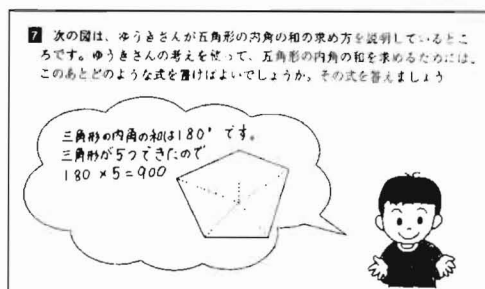 7 次の図は、ゆうきさんが五角形の内角の和の求め方を説明しているとこ
ろです。ゆうきさんの考えを使って、五角形の内角の和を求めるためには、
このあとどのような式を書けばよいでしょうか。その式を答えましょう
三角形の内角の和は180°です。
三角形が5つできたので
180×5=900